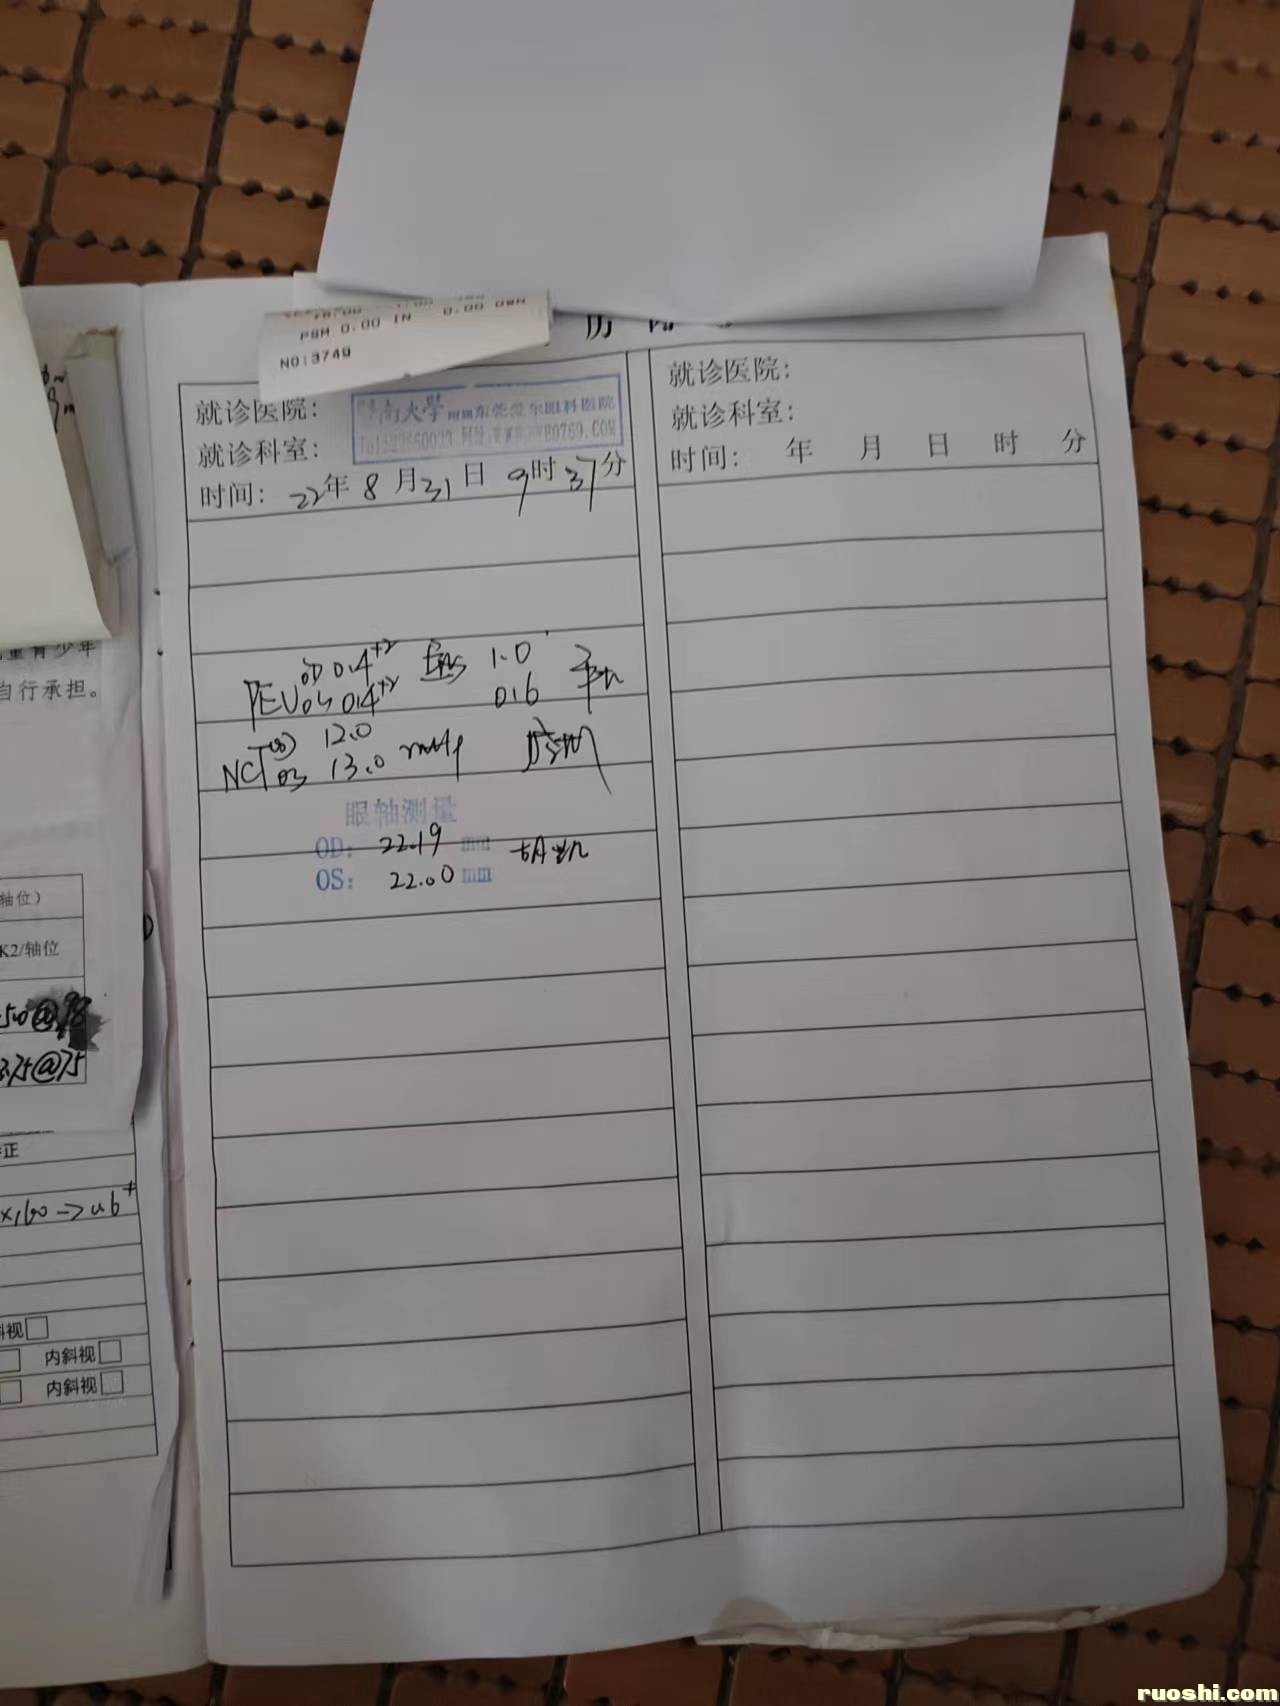 PSM 0.00 IN 0.00 DWN
NO:3749
历
就诊医院：
南大学 东莞爱尔眼科医院
就诊科室：
时间：22年8月31日 9时37分
OD 0.4⁺² 1.0
OS 0.4⁺² 0.6
NCT OD 12.0
OS 13.0 mmHg
眼轴测量
OD： 22.19 mm
OS： 22.00 mm
就诊医院：
就诊科室：
时间： 年 月 日 时 分
童青少年
自行承担。
轴位）
K2/轴位
@98
3.75@75
正
×160→0.6⁺
斜视
内斜视
内斜视
ruoshi.com